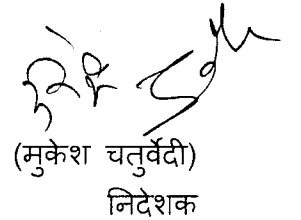 (मुकेश चतुर्वेदी)
निदेशक